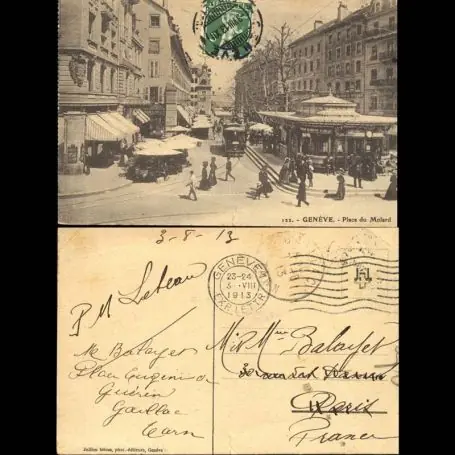 122. - GENÈVE. - Place du Molard
3-8-13
GENÈVE
23-24
3.-VIII
1913
EXP. LETTR.
P M Leteau
M Balayer
Place Eugénie de
Guérin
Gaillac
Tarn
Mr & Mme Balayer
Paris
France
Jullien frères, phot.-éditeurs, Genève